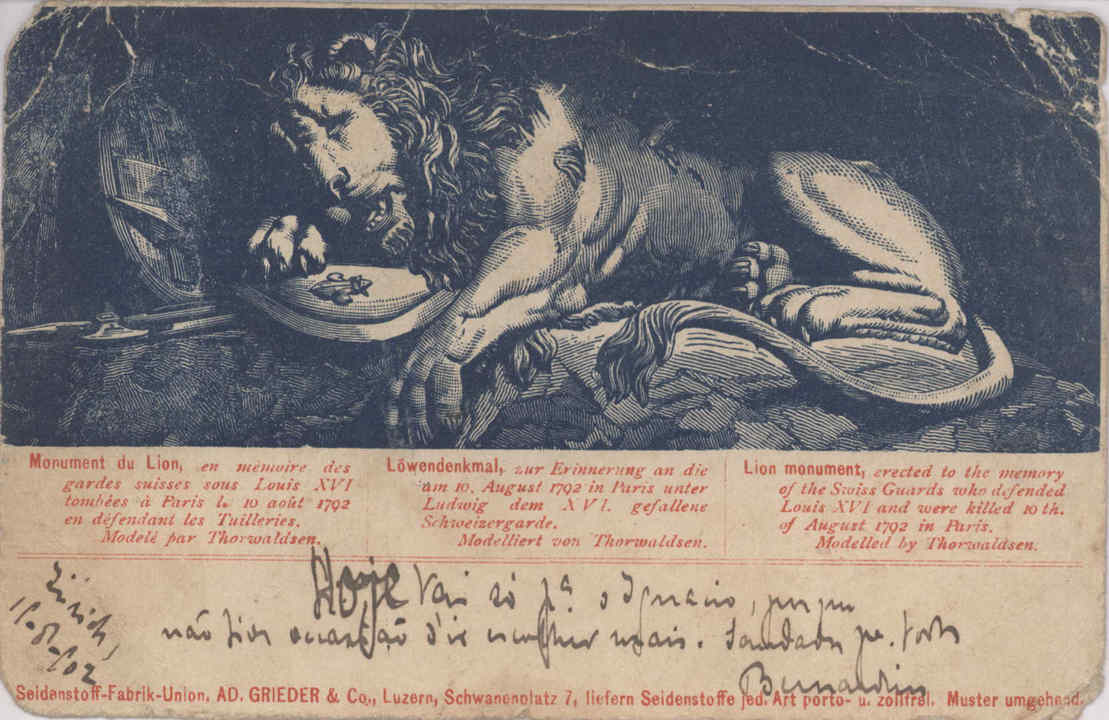 Monument du Lion, en mémoire des
gardes suisses sous Louis XVI
tombées à Paris le 10 août 1792
en défendant les Tuilleries.
Modelé par Thorwaldsen.
Löwendenkmal, zur Erinnerung an die
am 10. August 1792 in Paris unter
Ludwig dem XVI. gefallene
Schweizergarde.
Modelliert von Thorwaldsen.
Lion monument, erected to the memory
of the Swiss Guards who defended
Louis XVI and were killed 10 th.
of August 1792 in Paris.
Modelled by Thorwaldsen.
Zürich,
Hoje vai só pª o Ignacio, porque
não tive occasião d'ir escolher mais. Saudades pª. todos
Bernardino
Seidenstoff-Fabrik-Union, AD. GRIEDER & Co., Luzern, Schwanenplatz 7, liefern Seidenstoffe jed. Art porto- u. zollfrei. Muster umgehend.